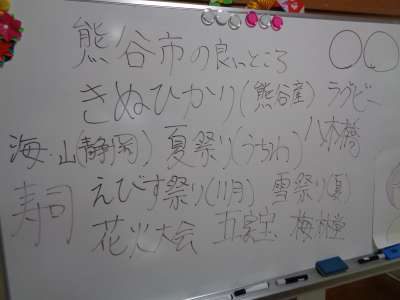 熊谷市の良いところ
きぬひかり(熊谷産) ラグビー
海・山(静岡) 夏祭り(うちわ) 八木橋
寿司 えびす祭り(11月) 雪祭り(夏)
花火大会 五家宝 梅林堂